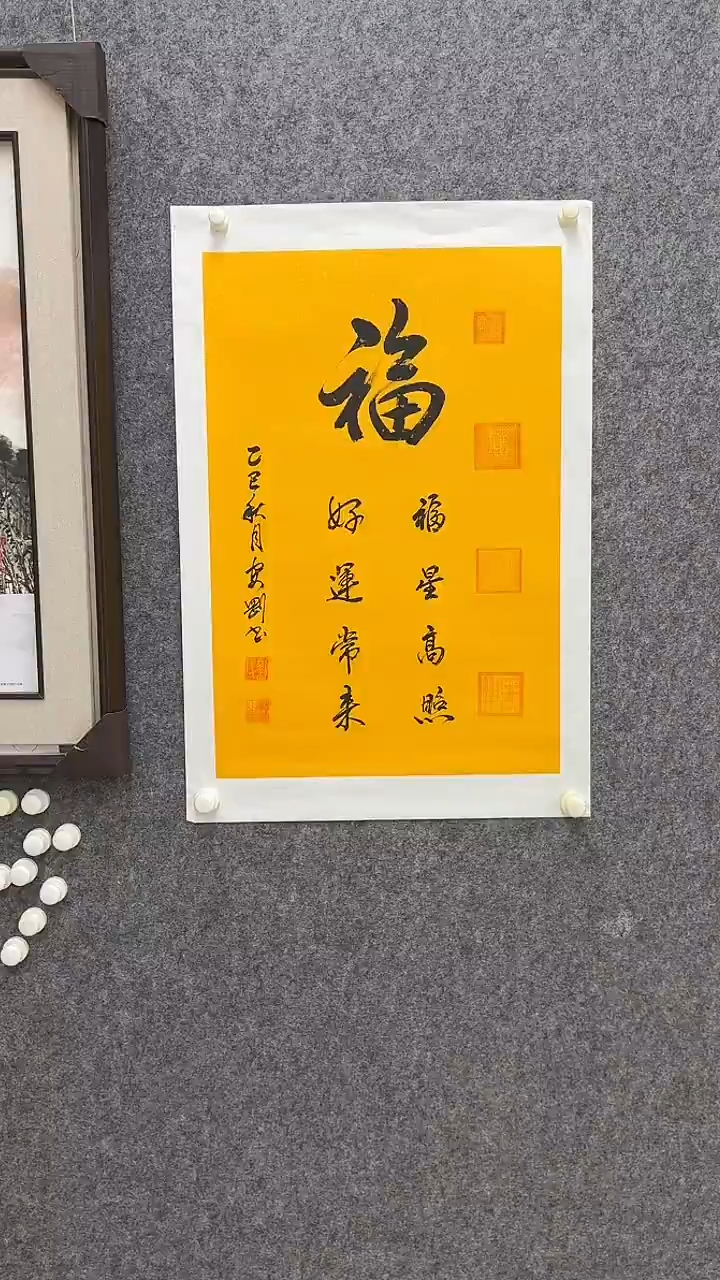 福
福星高照
好運常来
乙巳秋月安劉书